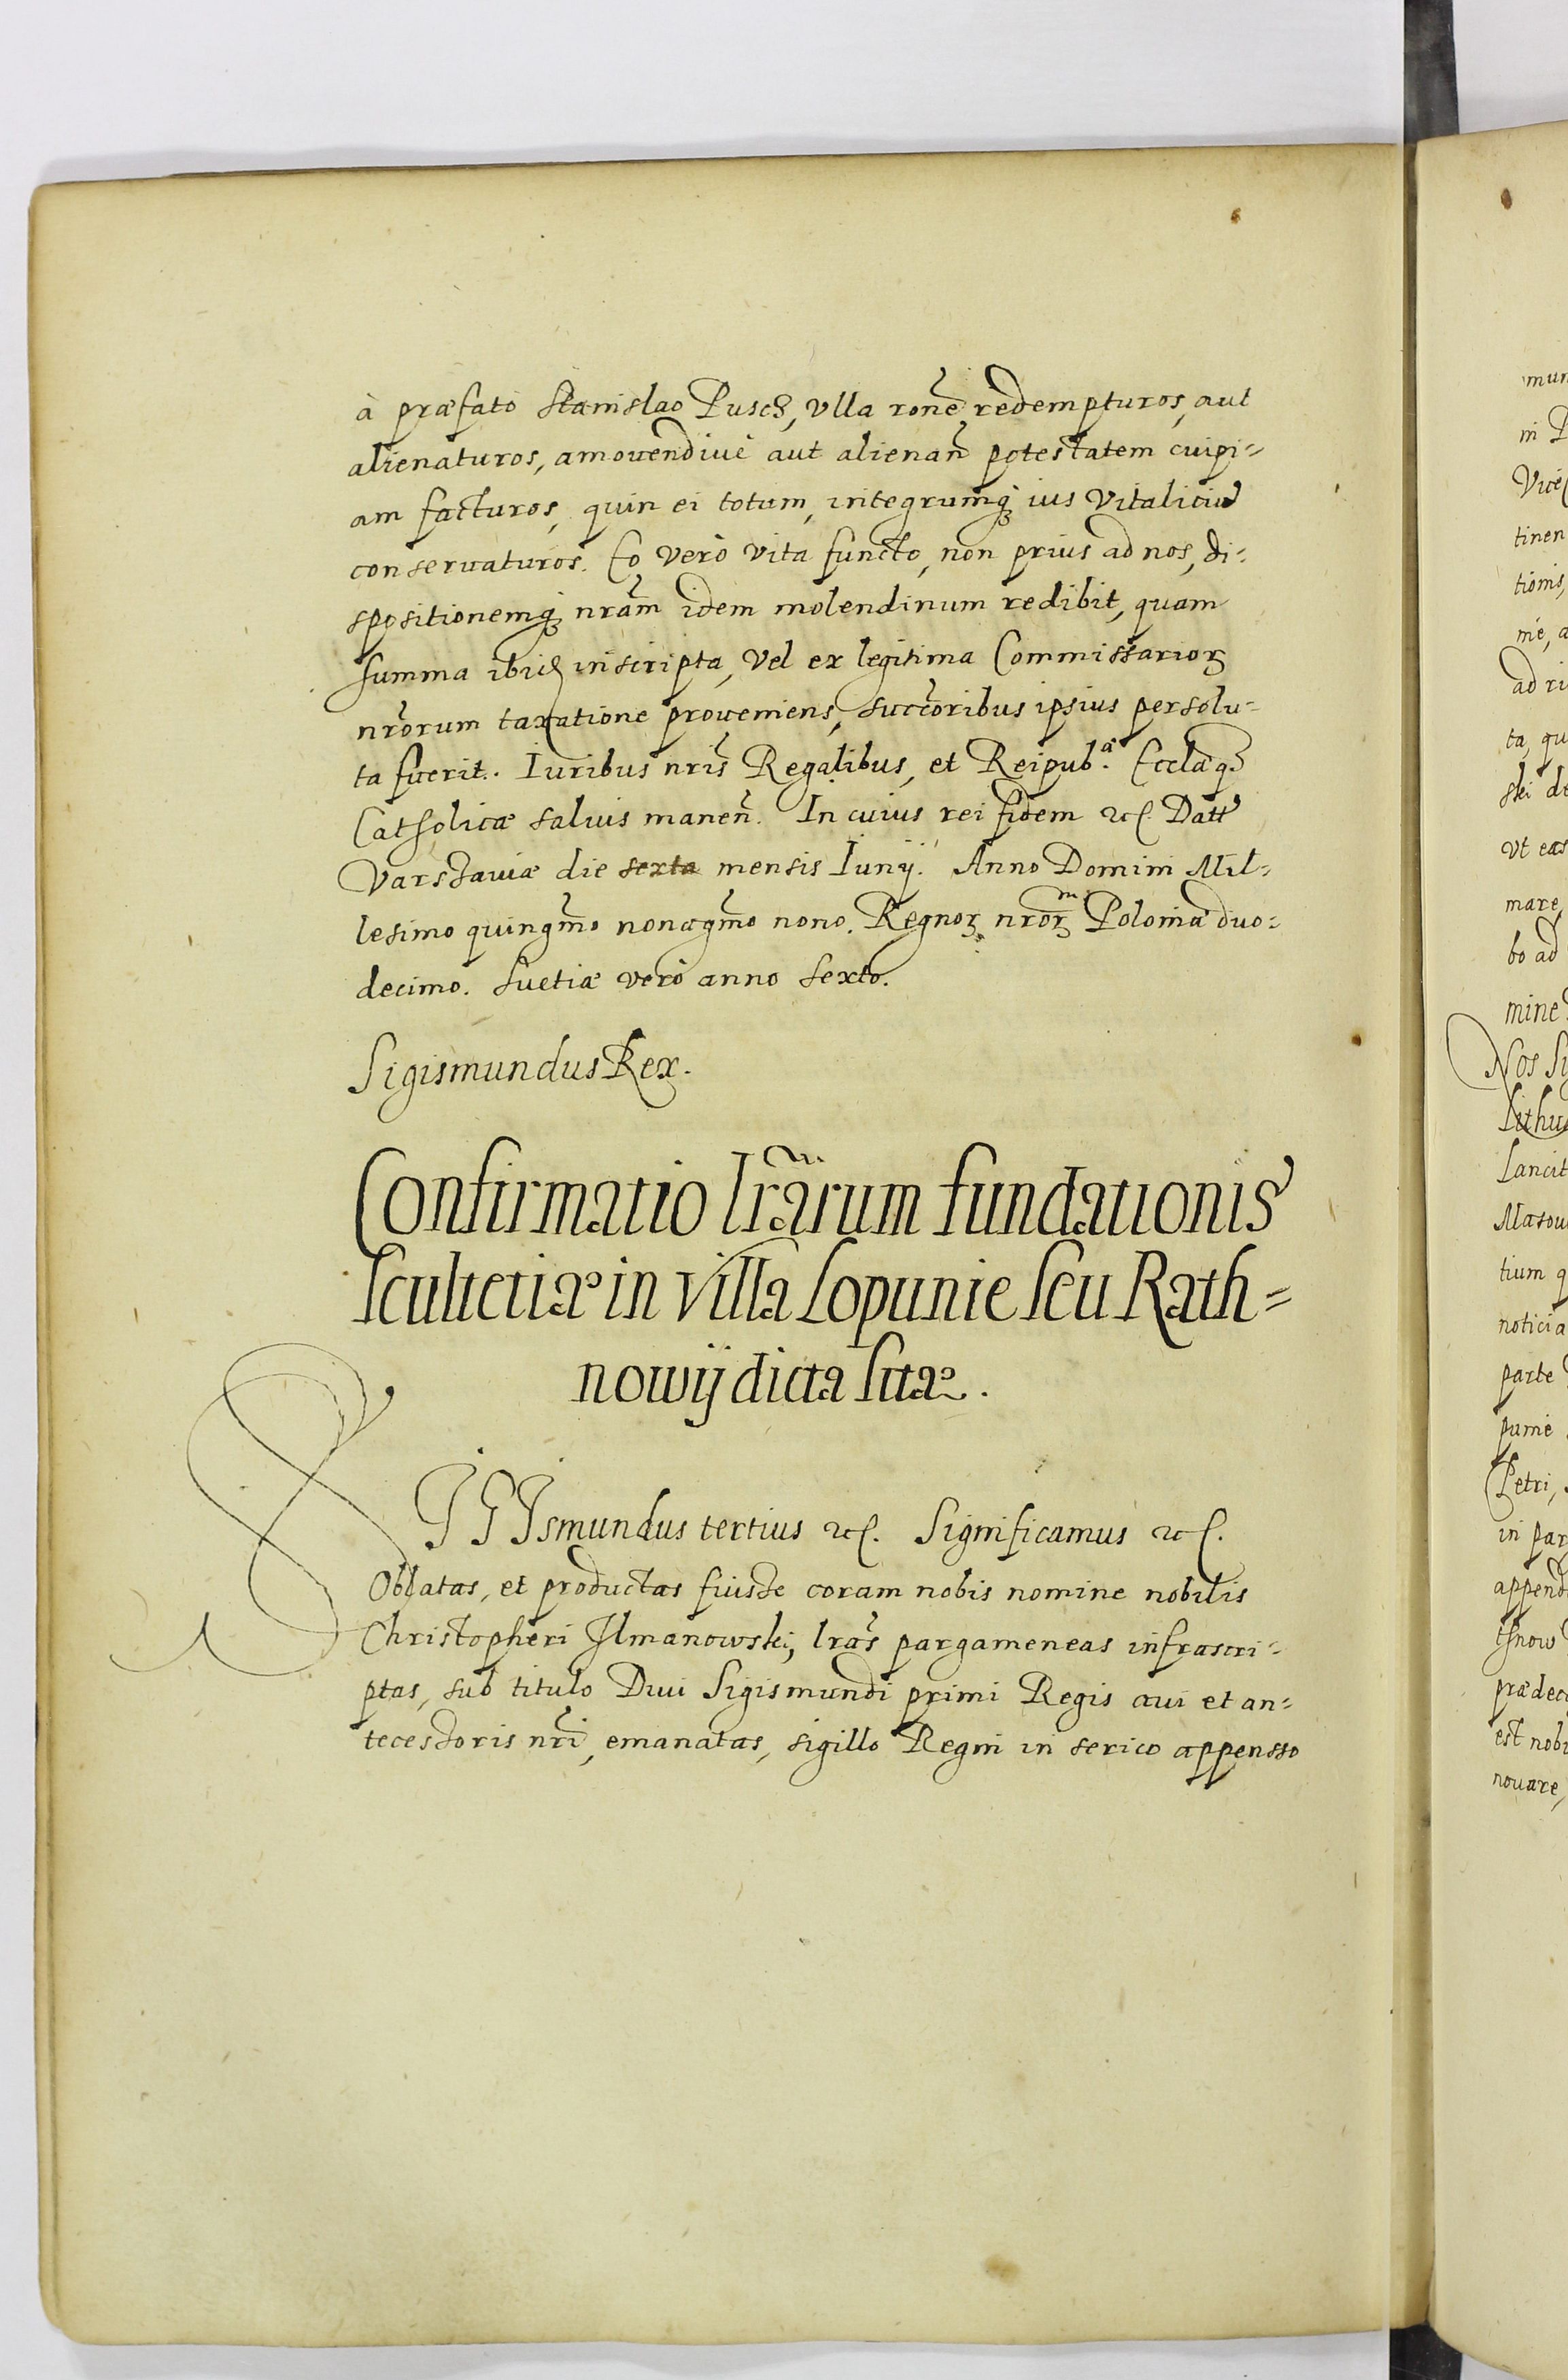 à præfato Stanislao Pusch, vlla rone͂ redempturos, aut
alienaturos, amouendiué aut alienan͂ potestatem cuipi=
am facturos, quin ei totum, integrumq́ꝫ ius Vitaliciu͂
conseruaturos. Eo verò vita functo, non prius ad nos, di=
spositionemq́ꝫ nra͂m idem molendinum redibit, quam
summa ibid͂ inscripta, vel ex legitima Commissarioꝝ
nr͂orum taxatione proueniens, succ͂oribus ipsius persolu=
ta fuerit. Iuribus nri͂s Regalibus, et Reipub.ᵃ Eccla͂eqꝫ
Catholicæ saluis manen͂. In cuius rei fidem ꝛc. Datt͂
Varsсhauiæ die sexta mensis Iunÿ. Anno Domini Mil=
lesimo quingm͂o nonagm͂o nono. Regnoꝝ nr͂oꝝ Poloniæ duo=
decimo. Suetiæ verò anno sexto.
Sigismundus Rex.
Confirmatio lr͂arum fundationis
scultetiæ in villa Lopunie seu Rath=
nowÿ dicta sitæ.
SIGIsmundus tertius ꝛc. Significamus ꝛc.
Oblatas, et productas fuisse coram nobis nomine nobilis
Christopheri Ilmanowski, lra͂s pargameneas infrascri=
ptas, sub titulo Diui Sigismundi primi Regis aui et an=
tecessoris nr͂i, emanatas, sigillo Regni in serico appensso
mun
in P
tinen
tionis,
me, a
ad ri
ta, qu
ski de
vt eas
mare,
bo ad
mine
Nos Si
Lithu
Lancit
Masou
tium q
noticia
parte
punie
Petri,
in par
append
thnow
prædec
est nobi
nouare,